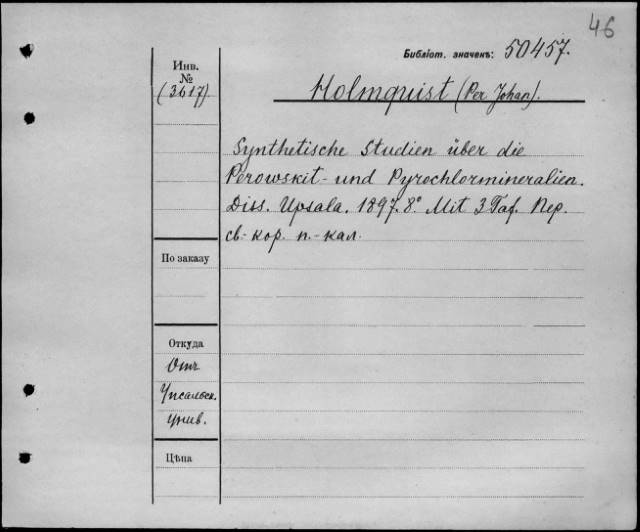 46
Библіот. значекъ: 50457.
Инв.
№
(3617)
Holmquist (Per Johan).
Synthetische Studien über die
Perowskit- und Pyrochlormineralien.
Diss. Upsala. 1897. 8º. Mit 3 Taf. Пер.
св.-кор. п.-кал.
По заказу
Откуда
Отъ
Упсальск.
унив.
Цѣна